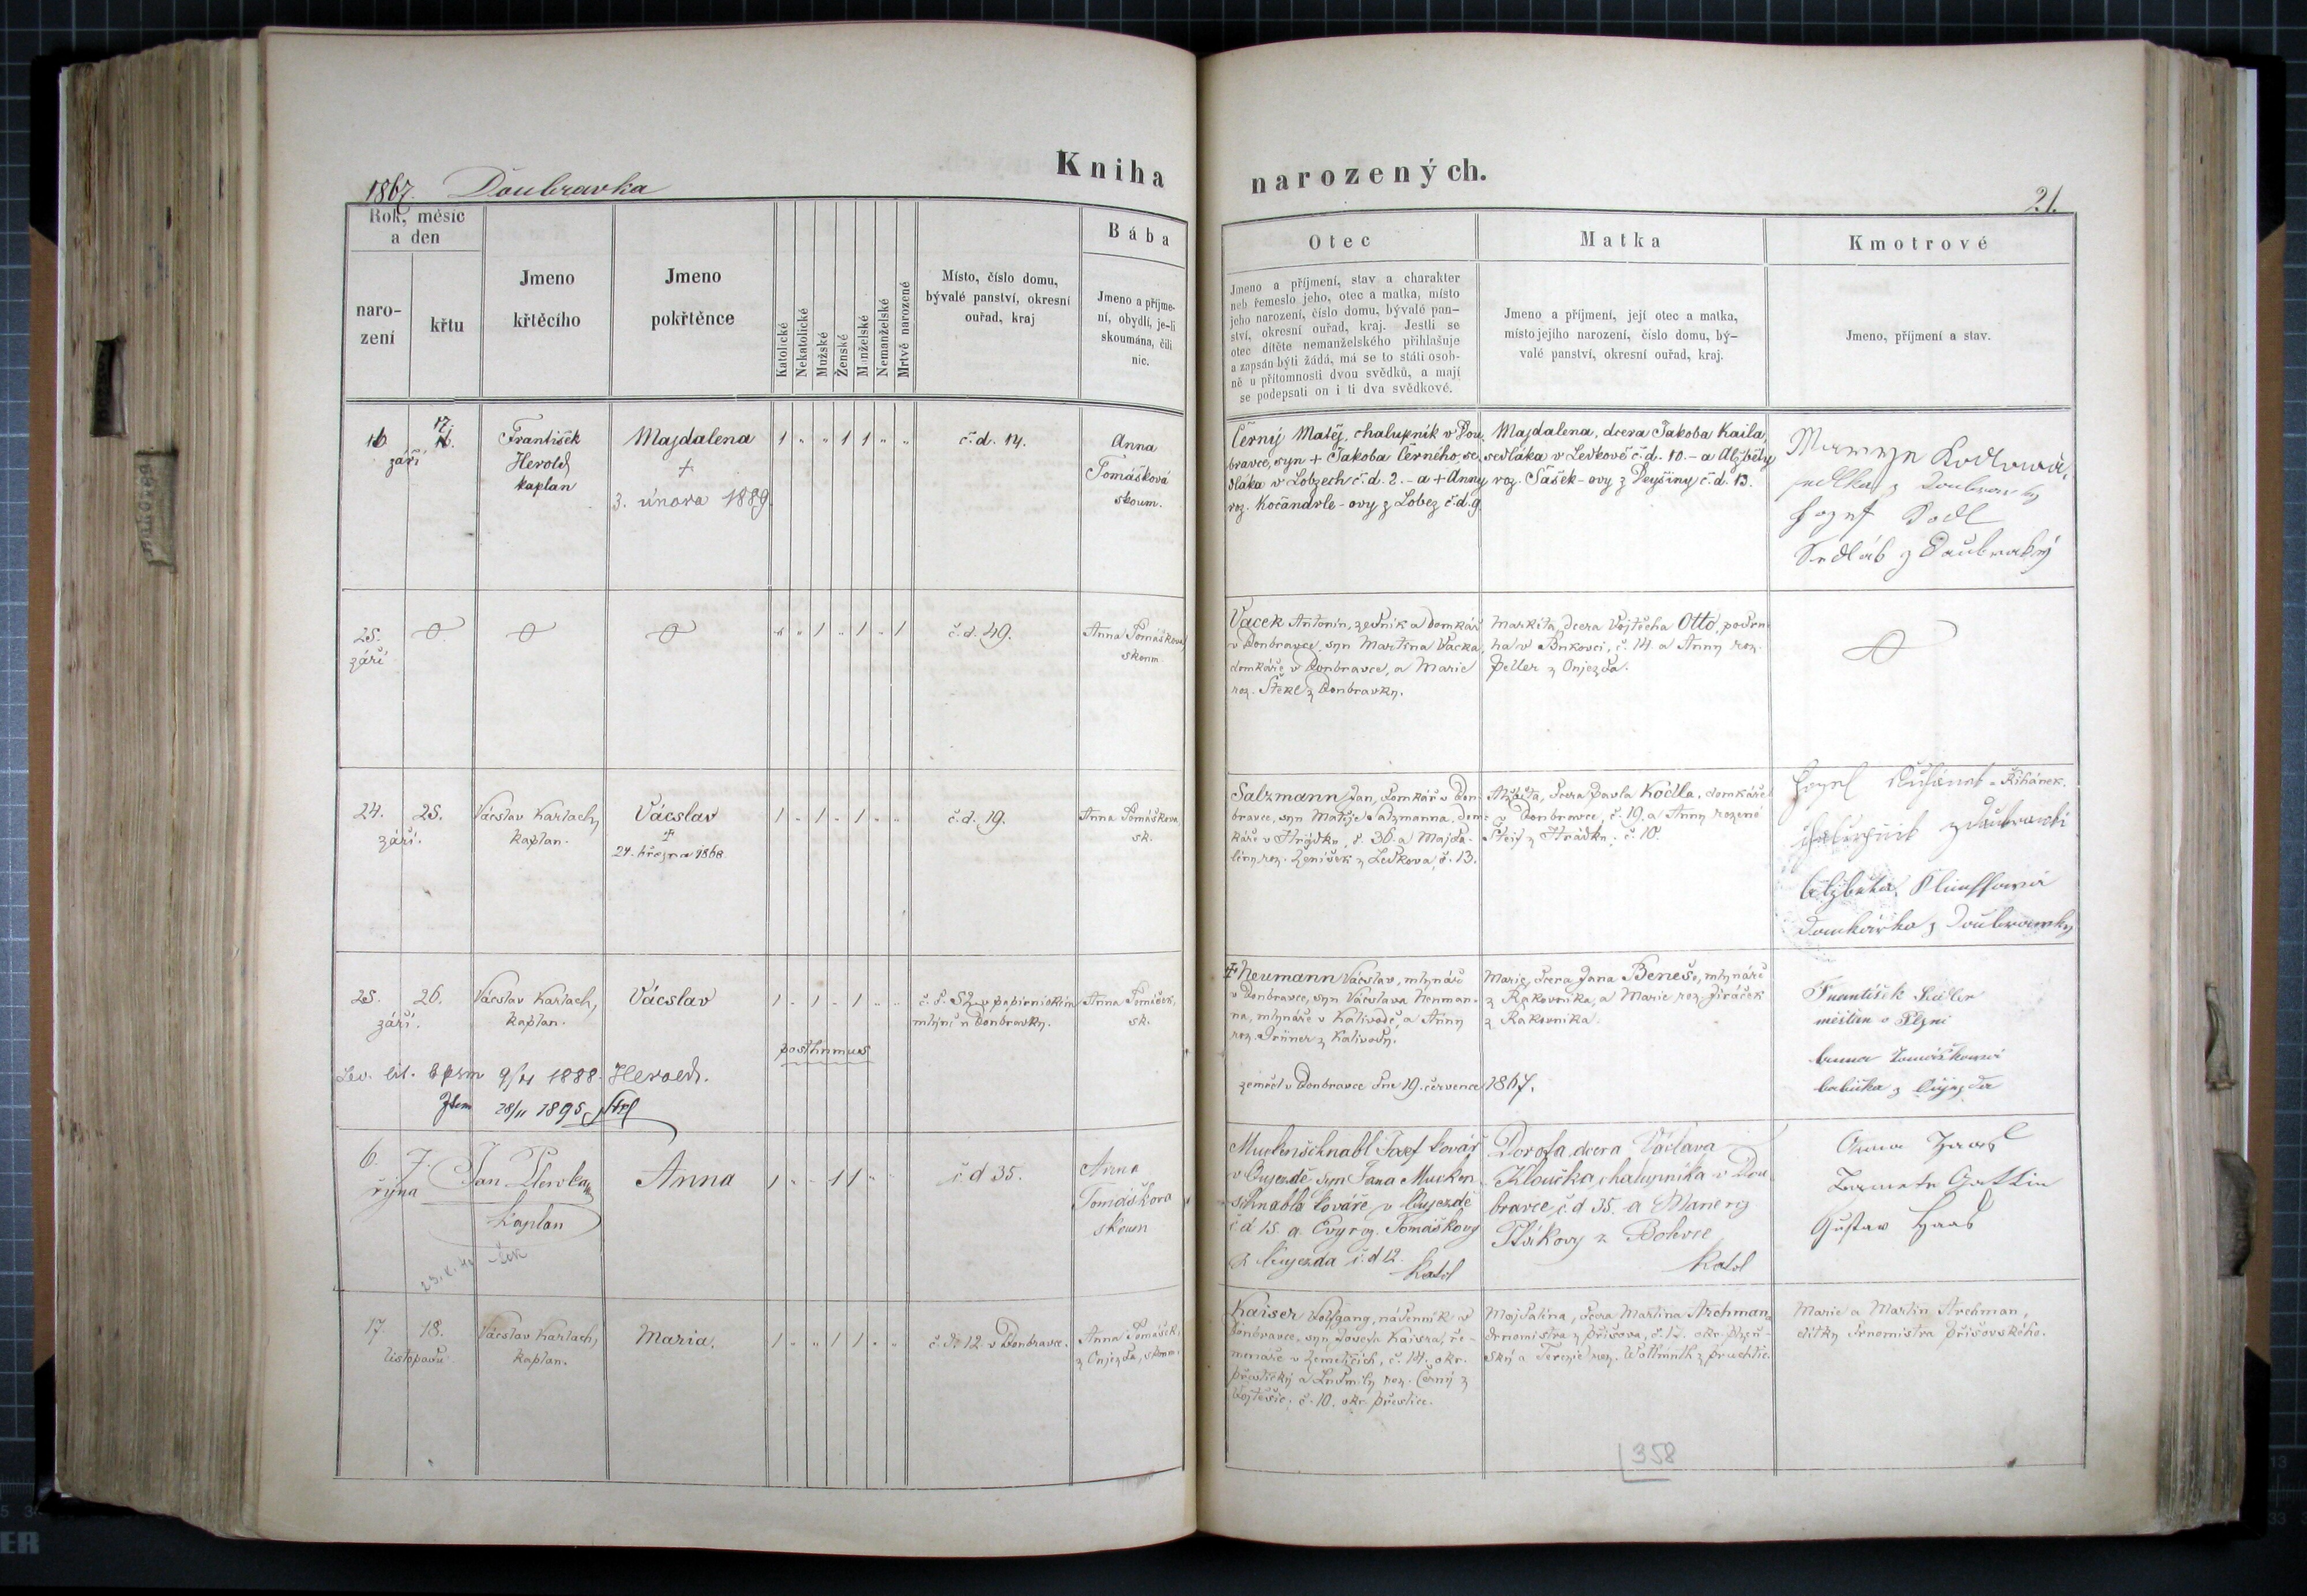 Kniha
narozených.
1867. Doubravka
21.
Rok, měsíc
a den
naro-
zení
křtu
Jmeno
křtěcího
Jmeno
pokřtěnce
Katolické
Nekatolické
Mužské
Ženské
Manželské
Nemanželské
Mrtvě narozené
Místo, číslo domu,
bývalé panství, okresní
ouřad, kraj
Bába
Jmeno a příjme-
ní, obydlí, je-li
skoumána, čili
nic.
Otec
Jmeno a příjmení, stav a charakter
neb řemeslo jeho, otec a matka, místo
jeho narození, číslo domu, bývalé pan-
ství, okresní ouřad, kraj. Jestli se
otec dítěte nemanželského přihlašuje
a zapsán býti žádá, má se to státi osob-
ně u přítomnosti dvou svědků, a mají
se podepsati on i ti dva svědkové.
Matka
Jmeno a příjmení, její otec a matka,
místo jejího narození, číslo domu, bý-
valé panství, okresní ouřad, kraj.
Kmotrové
Jmeno, příjmení a stav.
16. 17.
září
František
Herold
kaplan
Majdalena
+
3. února 1889.
1 " " 1 1 " "
č.d. 14.
Anna
Tomášková
skoum.
Černý Matěj, chalupník v Dou
bravce, syn + Jakoba Černého, se
dláka v Lobzech č.d. 2. - a + Anny
roz. Kočandrle-ovy z Lobez č.d. 9
Majdalena, dcera Jakoba Kaila,
sedláka v Ledkově č.d. 10. - a Alžběty
roz. Šašek-ovy z Deyšiny č.d. 13.
sedlka z Doubravky
Josef Kodl
Sedlák z Doubravky
25.
září
1 " 1 " 1
č.d. 49.
Anna Tomášková
skoum
Vacek Antonín, zedník a domkář
v Doubravce, syn Martina Vacka,
domkáře v Doubravce, a Marie
roz. Štekl z Doubravky.
Markéta, dcera Vojtěcha Otto, podru
ha v Bukovci, č. 14. a Anny roz.
Peller z Oujezda.
24. 25.
září.
Vácslav Karlach,
kaplan.
Vácslav
+
24. března 1868
1 " 1 " 1 " "
č.d. 19.
Anna Tomášková
sk.
Salzmann Jan, domkář v Dou-
bravce, syn Matěje Salzmanna, dom-
káře v Hrádku, č. 36. a Majda-
lény roz. Ženíšek z Ledkova, č. 13.
Alžběta, dcera Pavla Kodla, domkáře
v Doubravce, č. 19. a Anny rozené
z Hrádku, č. 10.
Řihánek.
z Doubravky
Alžběta
Domkářka z Doubravky
25. 26.
září.
Vácslav Karlach,
kaplan.
Vácslav
1 " 1 " 1 " "
č.d. 52 v papírnickém
mlýně u Doubravky.
Anna Tomášek,
sk.
posthumus
1888. Herold.
28/11 1895
+ Neumann Vácslav, mlynář
v Doubravce, syn Vácslava Neuman-
na, mlynáře v Kalivodě, a Anny
roz. Grüner z Kalivody.
zemřel v Doubravce dne 19. července 1867.
Marie, dcera Jana Beneše, mlynáře
z Rakovníka, a Marie roz. Jiráček
z Rakovníka.
František
měšťan v Plzni
Anna Tomášková
babička z Oujezda
6. 7.
října
Jan
Kaplan
Anna
1 " " 1 1 "
č.d 35.
Anna
Tomáškova
skoum
Muckenschnabl Josef kovář
v Oujezdě syn Jana Mucken
schnabla kováře v Oujezdě
č d 15 a Evy roz. Tomáškovy
z Oujezda č.d 12.
Katol
Dorota dcera Václava
Kloučka, chalupníka v Dou
bravce č.d 35. a
z Bolevce
Katol
Anna Haas
Gattin
Gustav Haas
17. 18.
listopadu
Vácslav Karlach,
kaplan.
Maria.
1 " " 1 1 " "
č.d. 12. v Doubravce.
Anna Tomášek,
z Oujezda, skoum.
Kaiser Wolfgang, nádenník v
Doubravce, syn Josefa Kaisra, ře-
menáře v Zemětících, č. 14. okr.
přeštický a Ludmily roz. Černý z
č. 10. okr. přeštice.
Majdalena, dcera Martina Archman,
drnomistra z Příšova, č. 12. okr. plzeň-
ský a Terezie roz.
Marie a Martin Archman,
dítky drnomistra příšovského.
358